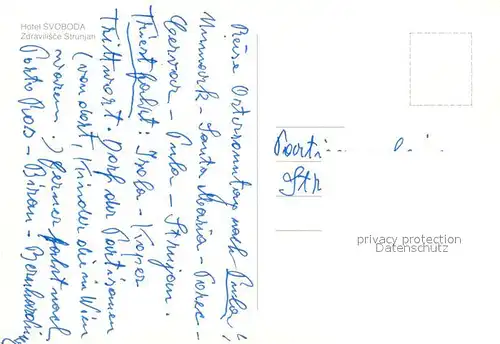 Hotel SVOBODA
Zdravilišče Strunjan
Reise Ostersonntag nach Pula!
Santa Maria - Porec -
Cervar - Pula - Strunjan.
Triestfahrt: Isola - Koper
Dorf der Partisanen
(von dort, Kinder die in Wien
waren.) Ferner Fahrt nach
Porto Ros - Piran - Bernhardin
Parti
Str
privacy protection
DATENSCHUTZ